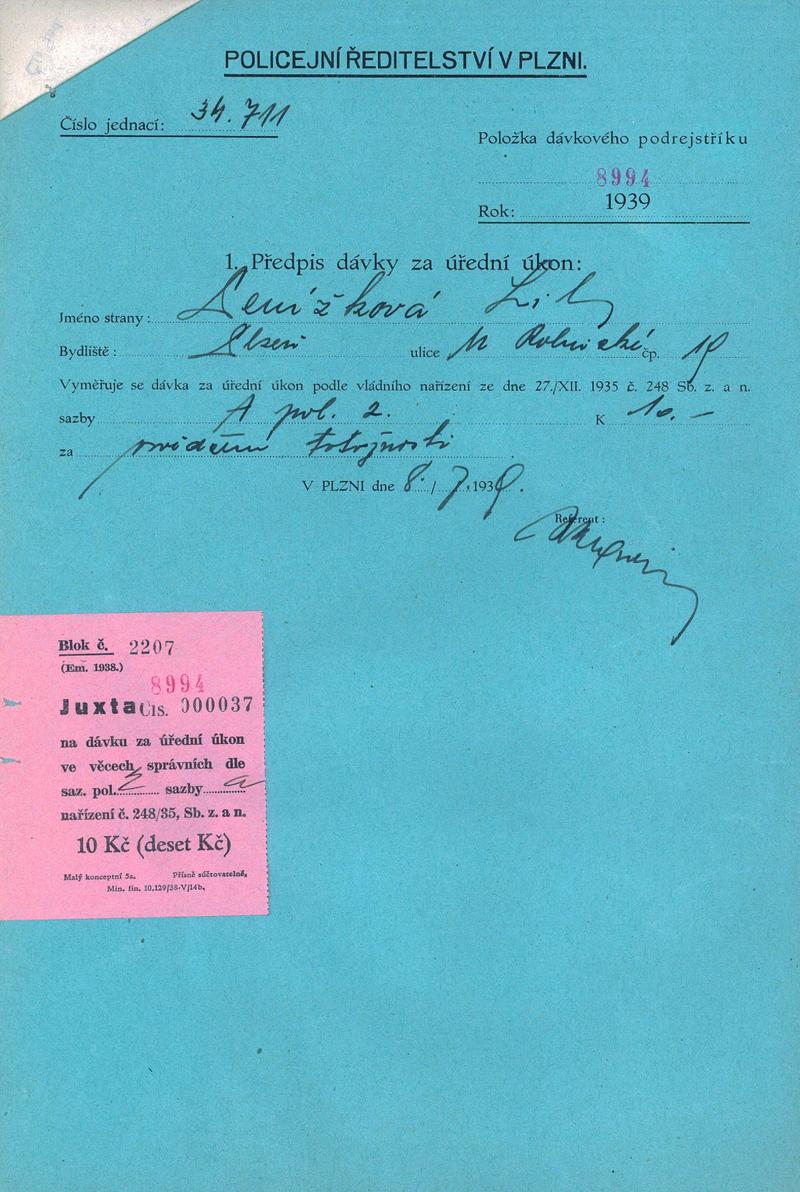 POLICEJNÍ ŘEDITELSTVÍ V PLZNI.
Číslo jednací: 34.711
Položka dávkového podrejstříku
8994
Rok: 1939
1. Předpis dávky za úřední úkon:
Jméno strany:
Bydliště: Plzeň ulice čp. 19
Vyměřuje se dávka za úřední úkon podle vládního nařízení ze dne 27./XII. 1935 č. 248 Sb. z. a n.
sazby A pol. 2. K 10.-
za totožnosti
V PLZNI dne 8./7.1939.
Referent:
Blok č. 2207
(Em. 1938.)
8994
Juxta Čís. 000037
na dávku za úřední úkon
ve věcech správních dle
saz. pol. 2 sazby a
nařízení č. 248/35, Sb. z. a n.
10 Kč (deset Kč)
Malý konceptní 5a. Přísně súčtovatelné,
Min. fin. 10.129/38-V/14b,